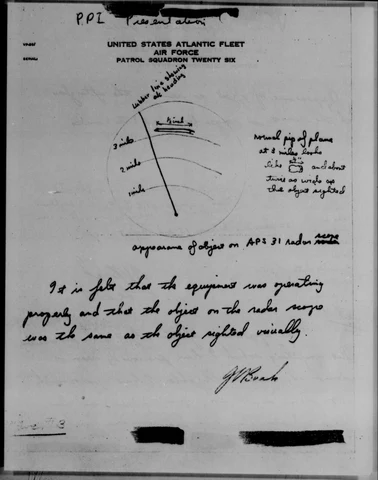 PPI Presentation
UNITED STATES ATLANTIC FLEET
AIR FORCE
PATROL SQUADRON TWENTY SIX
lubber line showing
a/c heading
3 miles
2 miles
1 mile
normal pip of plane
at 2 miles looks
like and about
twice as wide as
the object sighted
appearance of object on APS 31 radar scope
It is felt that the equipment was operating
properly and that the object on the radar scope
was the same as the object sighted visually.
3